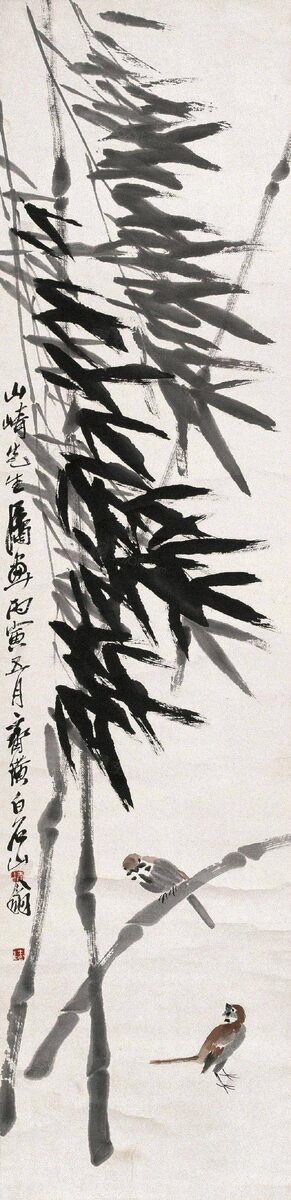 山崎先生属画丙寅五月齊璜白石山翁